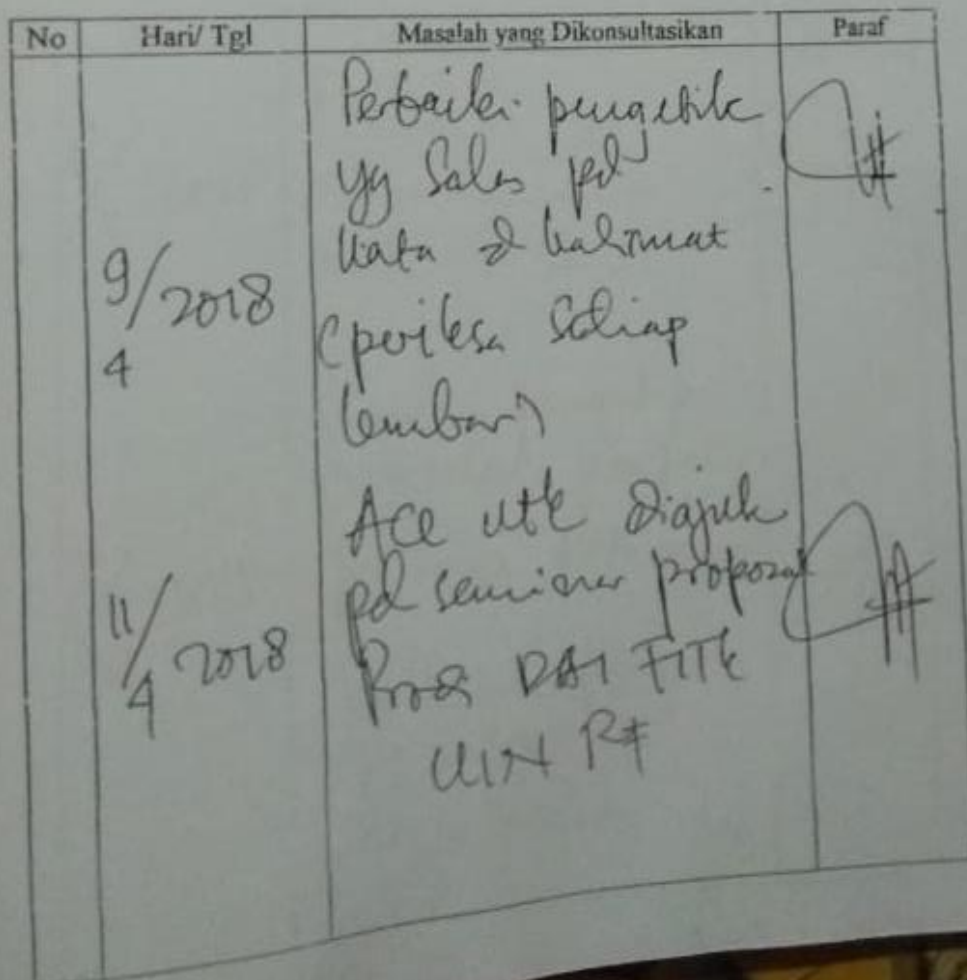 No Hari/ Tgl Masalah yang Dikonsultasikan Paraf
Perbaiki pengetik
yg Salah pd
kata & kalimat
9/4 2018
(periksa Setiap
lembar)
Acc utk diajuk
pd seminar proposal
11/4 2018
Prodi PAI FITK
UIN RF